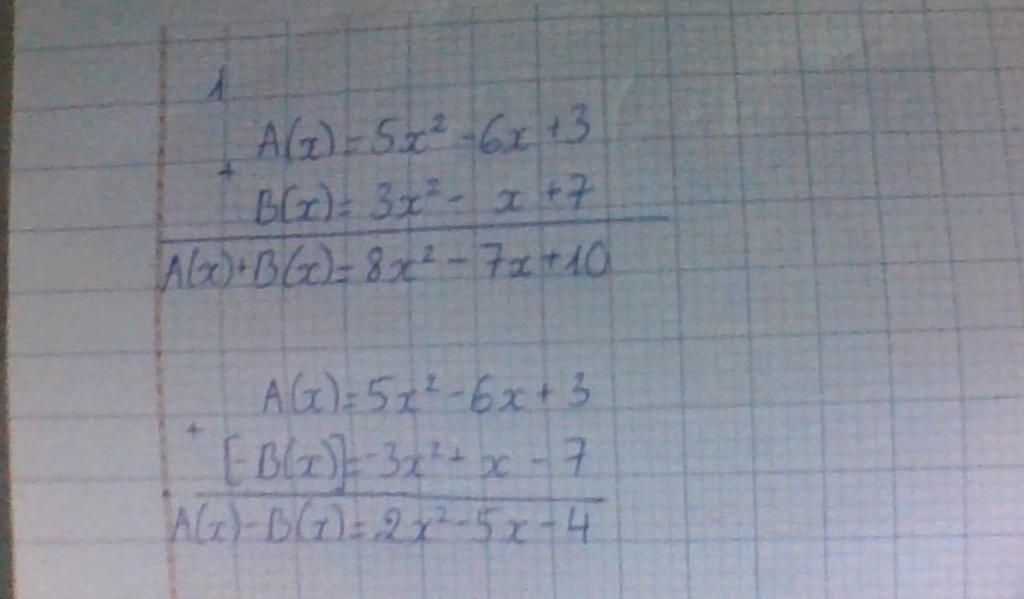 1
A(x)=5x²-6x+3
+
B(x)=3x²- x+7
A(x)+B(x)=8x²-7x+10
A(x)=5x²-6x+3
+
[-B(x)]=-3x²+x-7
A(x)-B(x)=2x²-5x-4